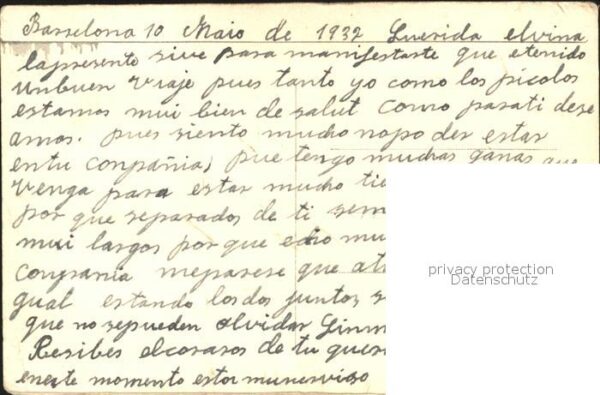 Barselona 10 Maio de 1932 Querida elvina
lapresente sive para manifestarte que etenido
unbuen viaje pues tanto yo como los picolos
estamos mui bien de salut como parati dese
amos. pues siento mucho nopo der estar
entu conpañia, pue tengo muchas ganas que
venga para estar mucho tie
por que separados de ti sem
mui largos por que echo mu
conpania meparese que
gual estando los dos juntos
que no sepueden olvidar
Resibes elcoraso de tu quer
eneste momento estoi munervioso
privacy protection
Datenschutz